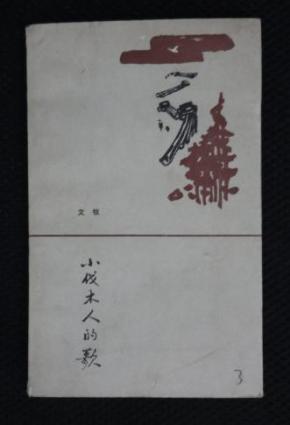 文牧
小伐木人的歌
3